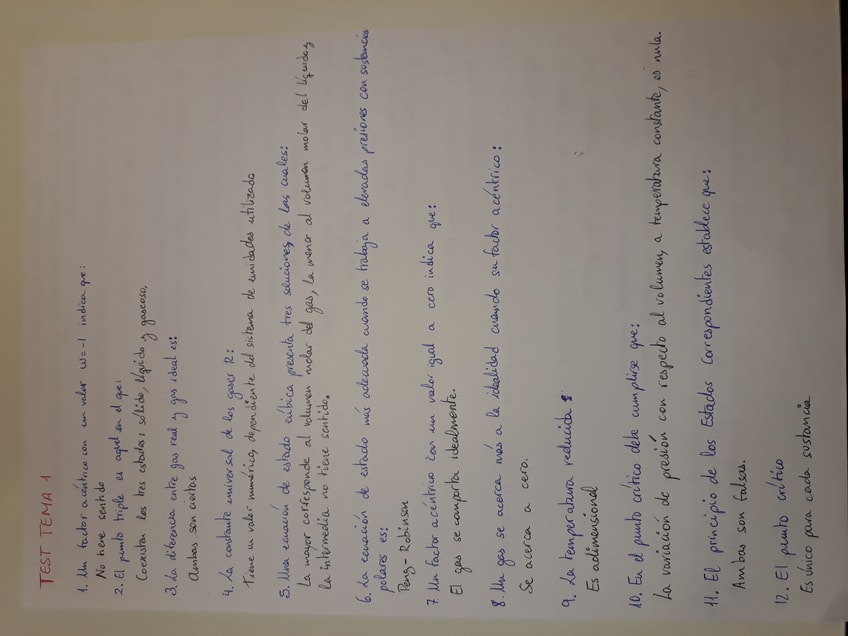 TEST TEMA 1
1. Un factor acéntrico con un valor w=-1 indica que:
No tiene sentido
2. El punto triple es aquel en el que:
Coexisten los tres estados: sólido, líquido y gaseoso.
3. La diferencia entre gas real y gas ideal es:
Ambas son ciertas
4. La constante universal de los gases R:
Tiene un valor numérico, dependiente del sistema de unidades utilizado
5. Una ecuación de estado cúbica presenta tres soluciones, de las cuales:
La mayor corresponde al volumen molar del gas, la menor al volumen molar del líquido, y
la intermedia no tiene sentido.
6. La ecuación de estado más adecuada cuando se trabaja a elevadas presiones con sustancias
polares es:
Peng-Robinson
7. Un factor acéntrico con un valor igual a cero indica que:
El gas se comporta idealmente.
8. Un gas se acerca más a la idealidad cuando su factor acéntrico:
Se acerca a cero.
9. La temperatura reducida:
Es adimensional
10. En el punto crítico debe cumplirse que:
La variación de presión con respecto al volumen, a temperatura constante, es nula.
11. El principio de los Estados Correspondientes establece que:
Ambas son falsas.
12. El punto crítico
Es único para cada sustancia